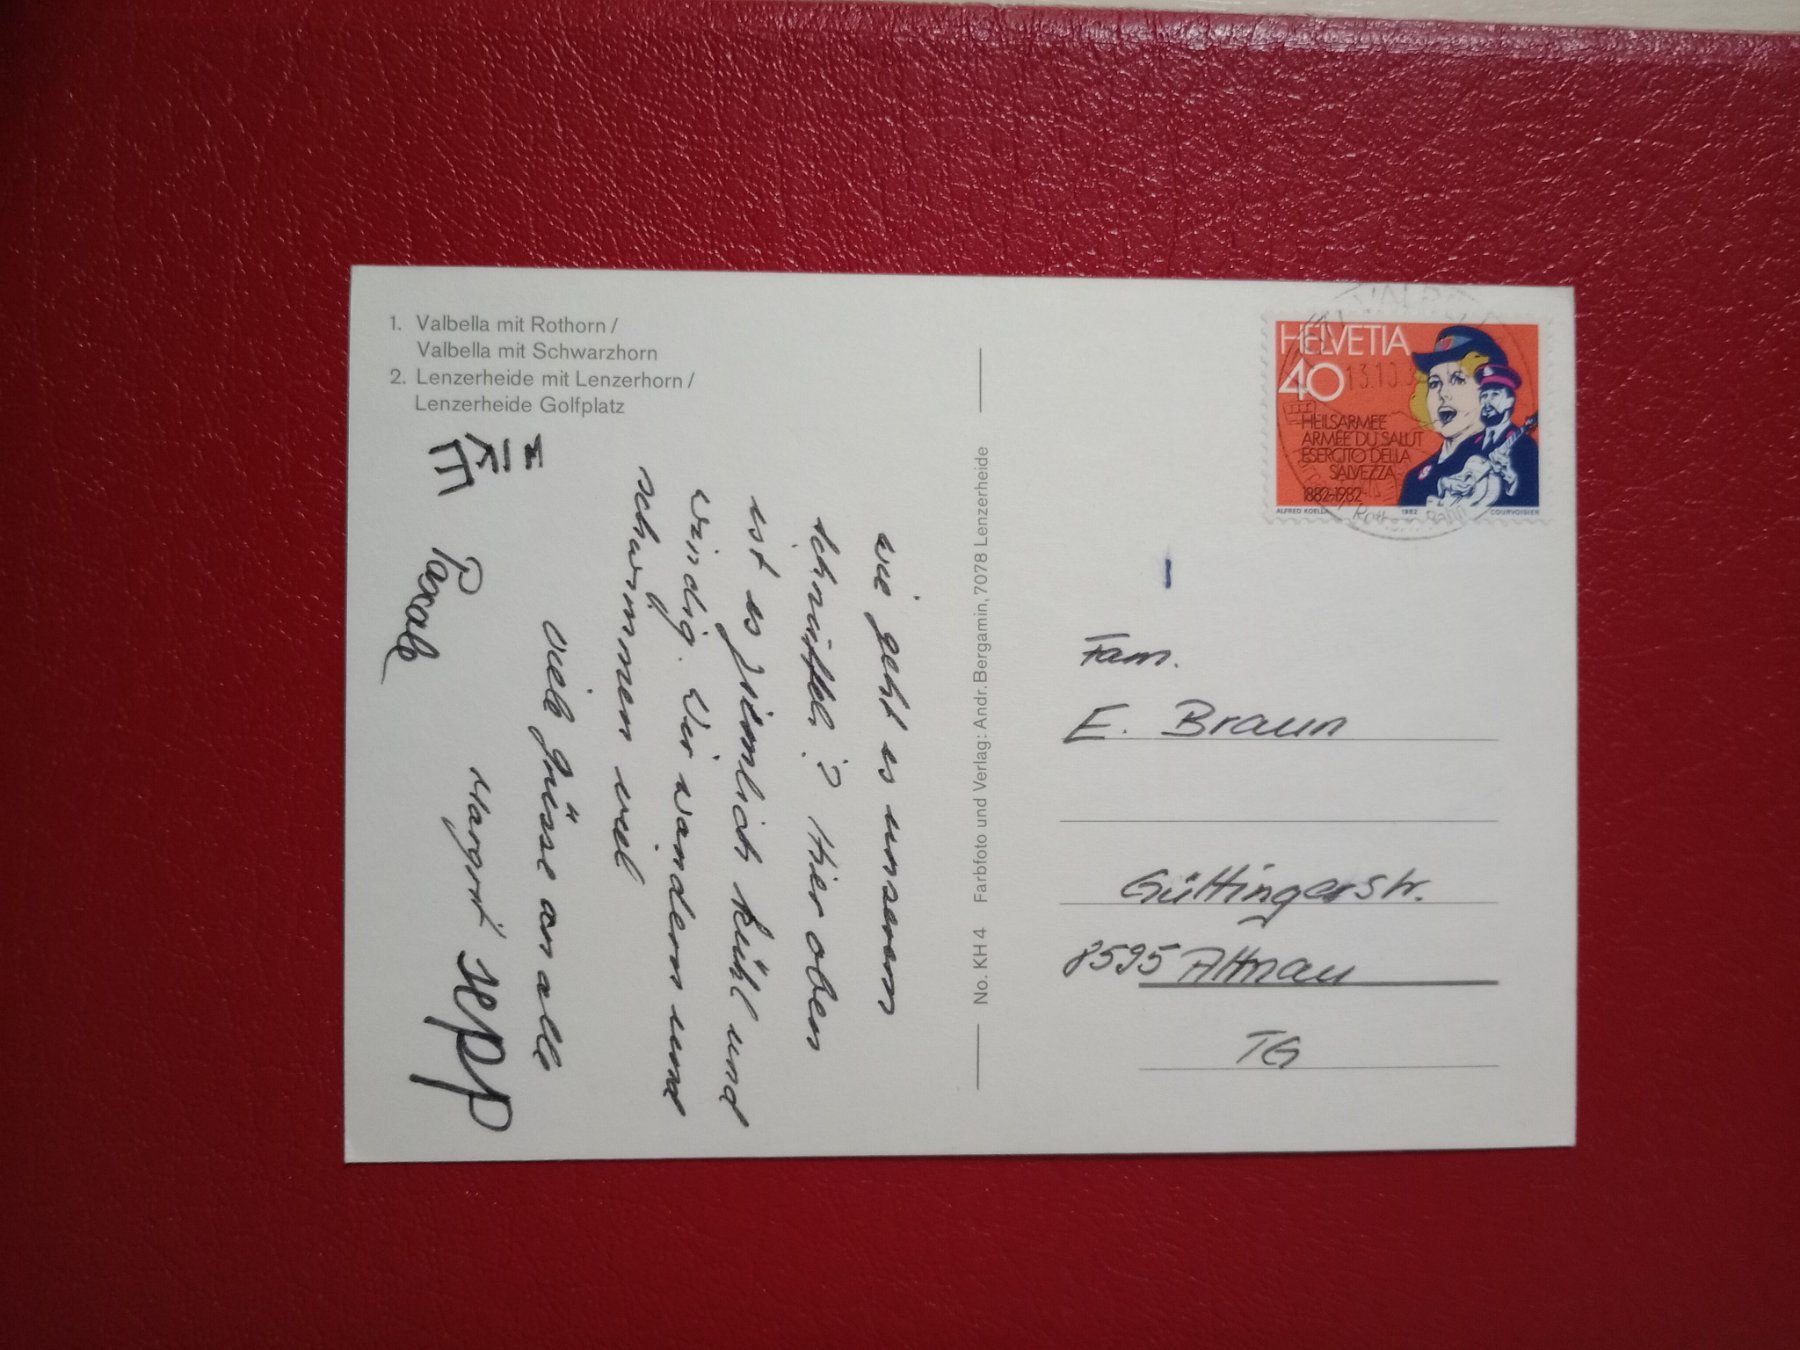 1. Valbella mit Rothorn /
Valbella mit Schwarzhorn
2. Lenzerheide mit Lenzerhorn /
Lenzerheide Golfplatz
wie geht es unserem
Schnüfeli? Hier oben
ist es ziemlich kühl und
windig. Wir wandern und
schwimmen viel
viele Grüsse an alle
Margrit Sepp
Pascale
No. KH 4 Farbfoto und Verlag: Andr. Bergamin, 7078 Lenzerheide
HELVETIA
40
13.10.
HEILSARMEE
ARMÉE DU SALUT
ESERCITO DELLA
SALVEZZA
1882-1982
ALFRED KOELLA 1982 COURVOISIER
Fam.
E. Braun
Güttingerstr.
8595 Altnau
TG